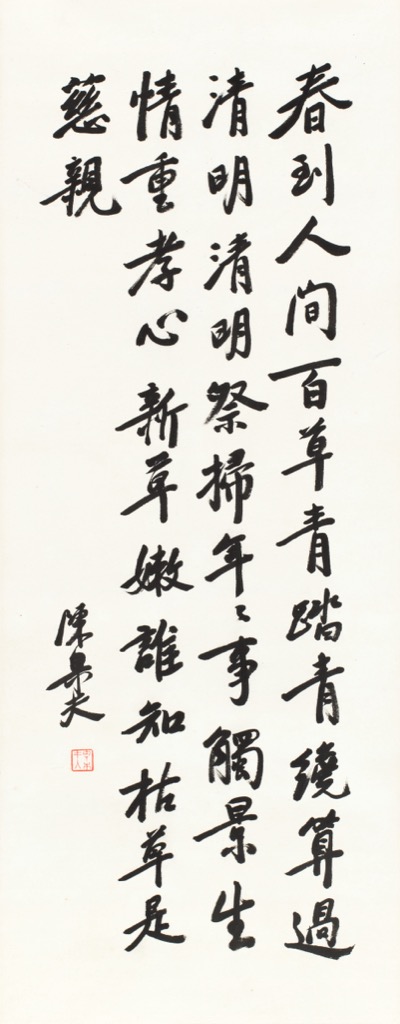 春到人間百草青踏青繞算過
清明清明祭掃年〻事觸景生
情重孝心新草嫩誰知枯草是
慈親
陳夫